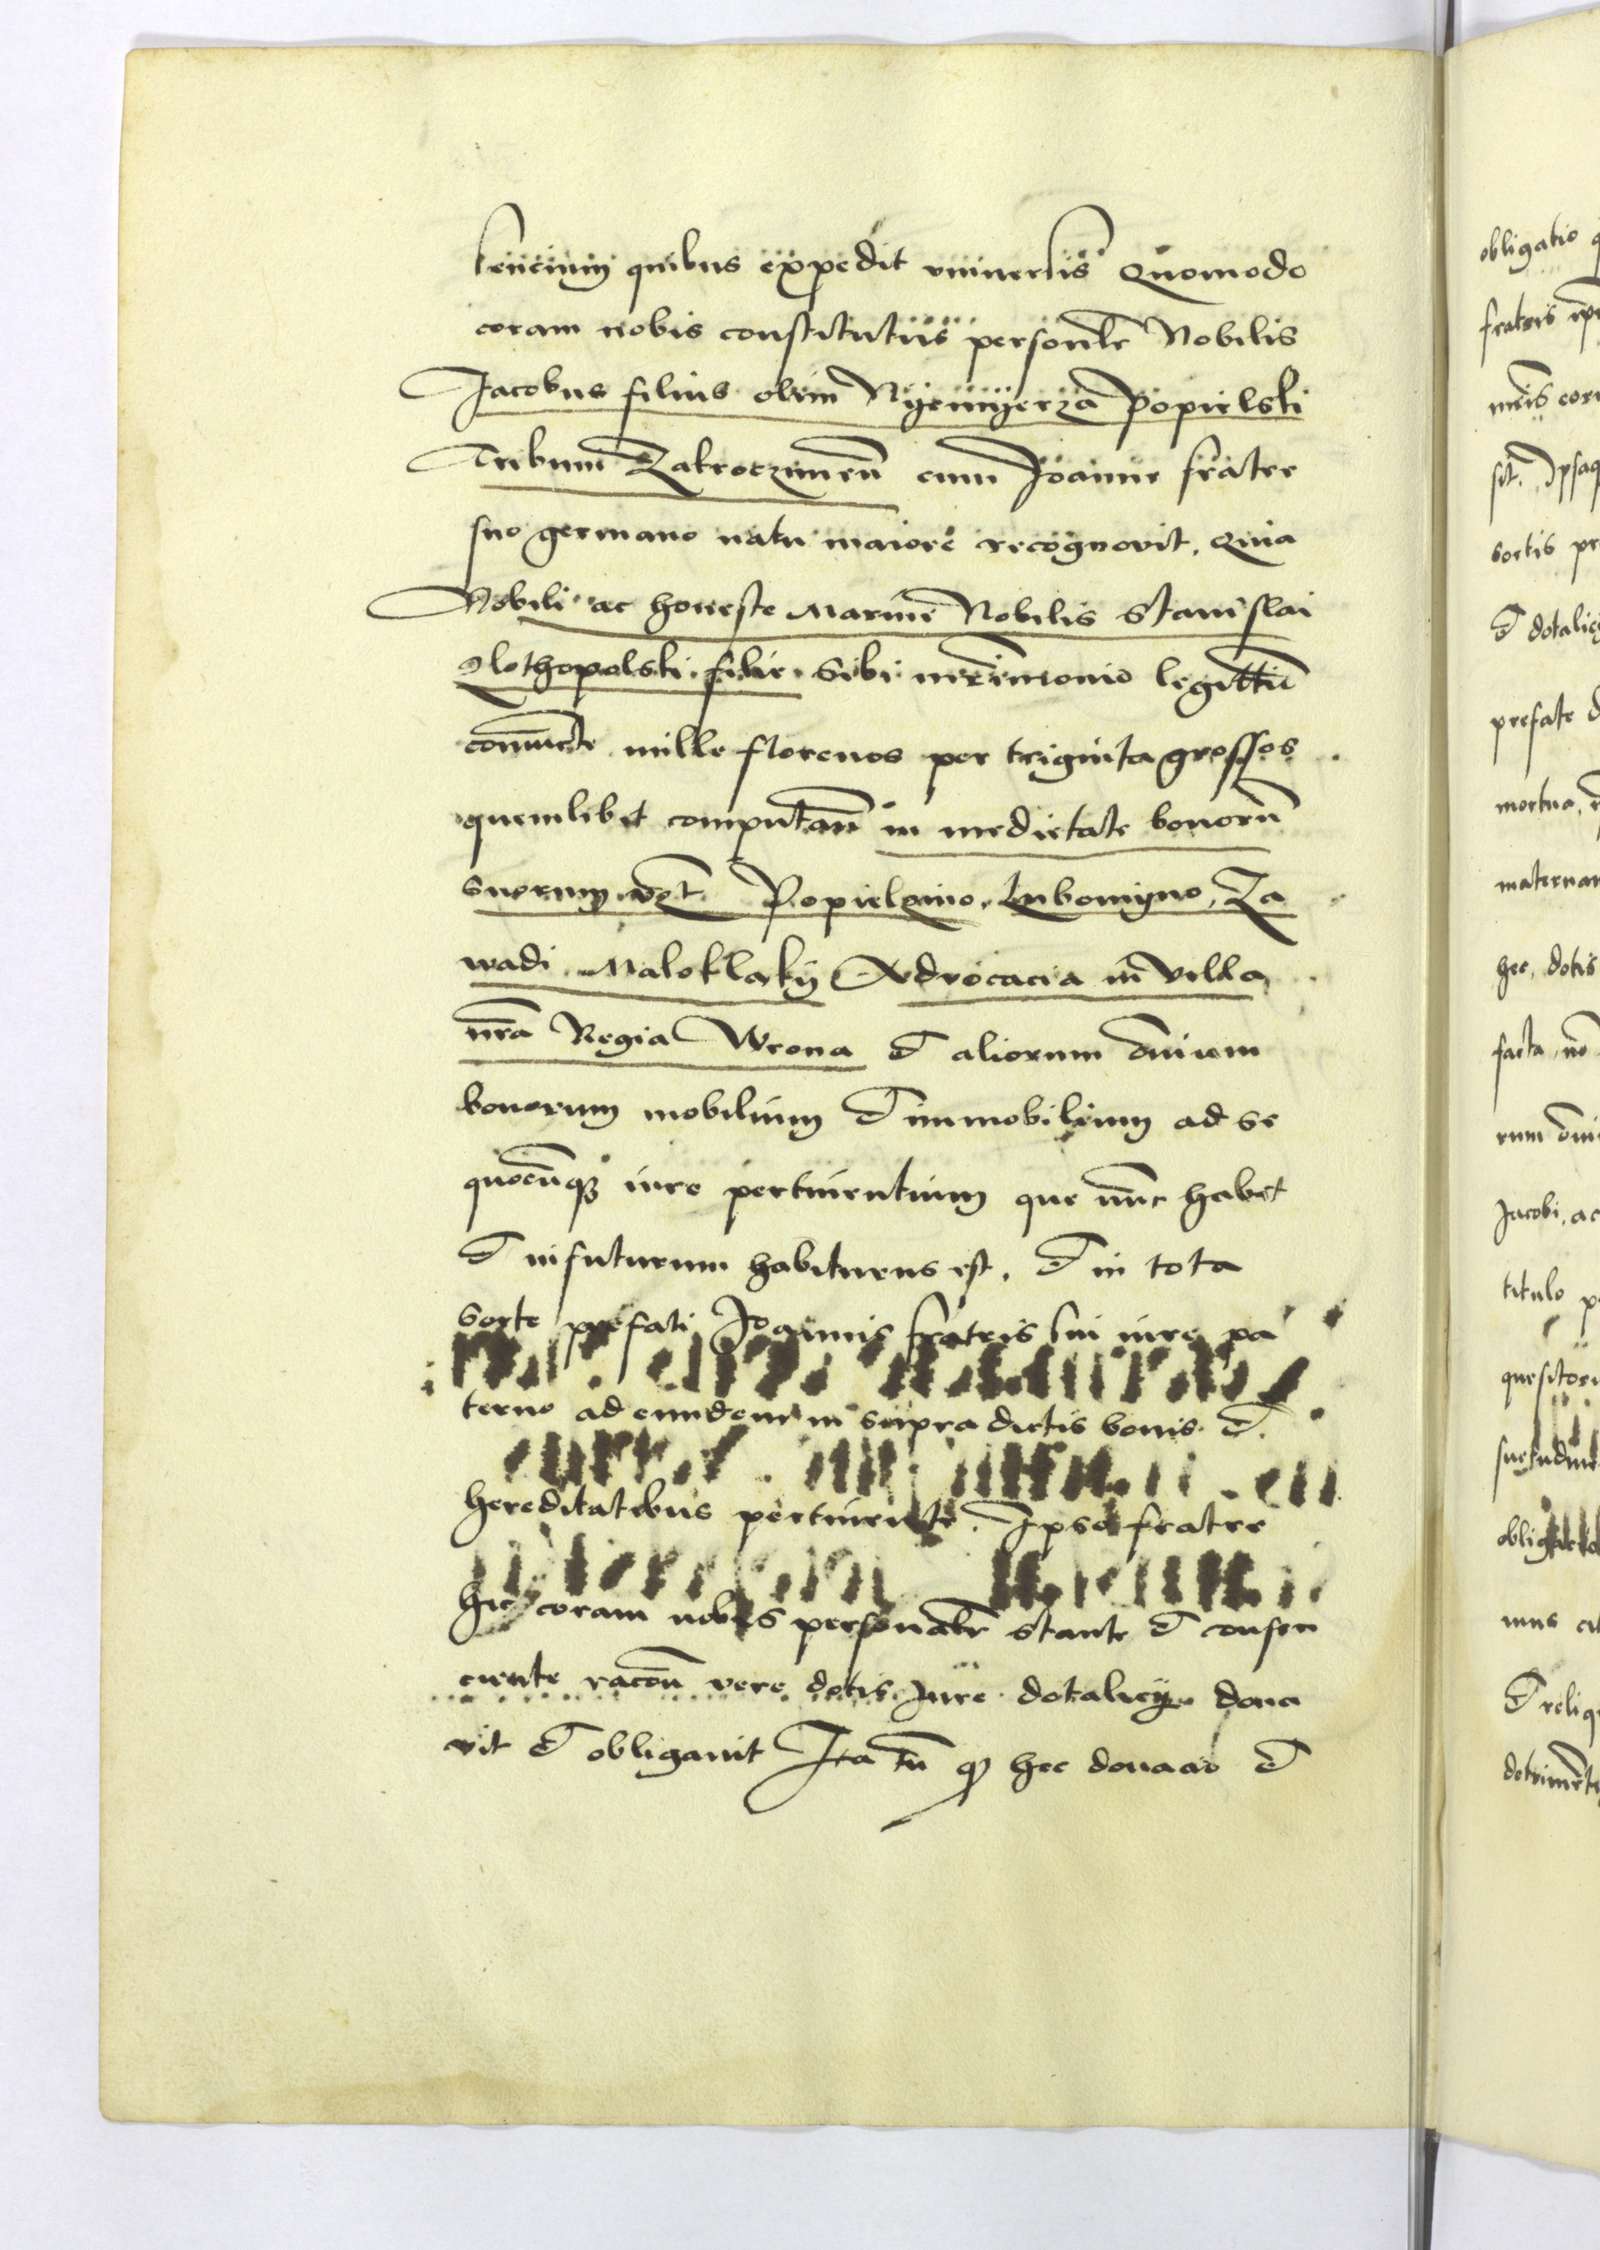 sencium quibus expedit universis Quomodo
coram nobis constitutus personlr Nobilis
Jacobus filius olim Nyemyerza Popielski
Tribuni Zakroczimen cum Joanne fratre
suo germano natu maiore recognovit. Quia
Nobili ac honeste Marine Nobilis Stanislai
filie sibi mrimonio legittiē
coniuncte mille florenos per triginta grossos
quemlibet computan in medietate bonorū
suorum vcz Popielzino, Lubomyno, Za
wadi Maloklaky Advocacia in villa
nra Regia Wrona et aliorum onium
bonorum mobilium et immobilium ad se
quocūq iure pertinentium que nūc habet
et in futurum habiturus est. et in tota
sorte prefati Joannis fratris sui iure pa
terno ad eundem in supra dictis bonis et
hereditatibus pertinente. Ipso fratre
hic coram nobis personalr stante et consen
ciente racōn vere dotis Jure dotalicy dona
vit et obligavit Ita tn q hec donacio et
obligatio
fratris
sortis
et dotalicy
prefate
mortua,
maternam
hec, dotis
facta, no
rum
Jacobi, ac
titulo
mus
et reliq